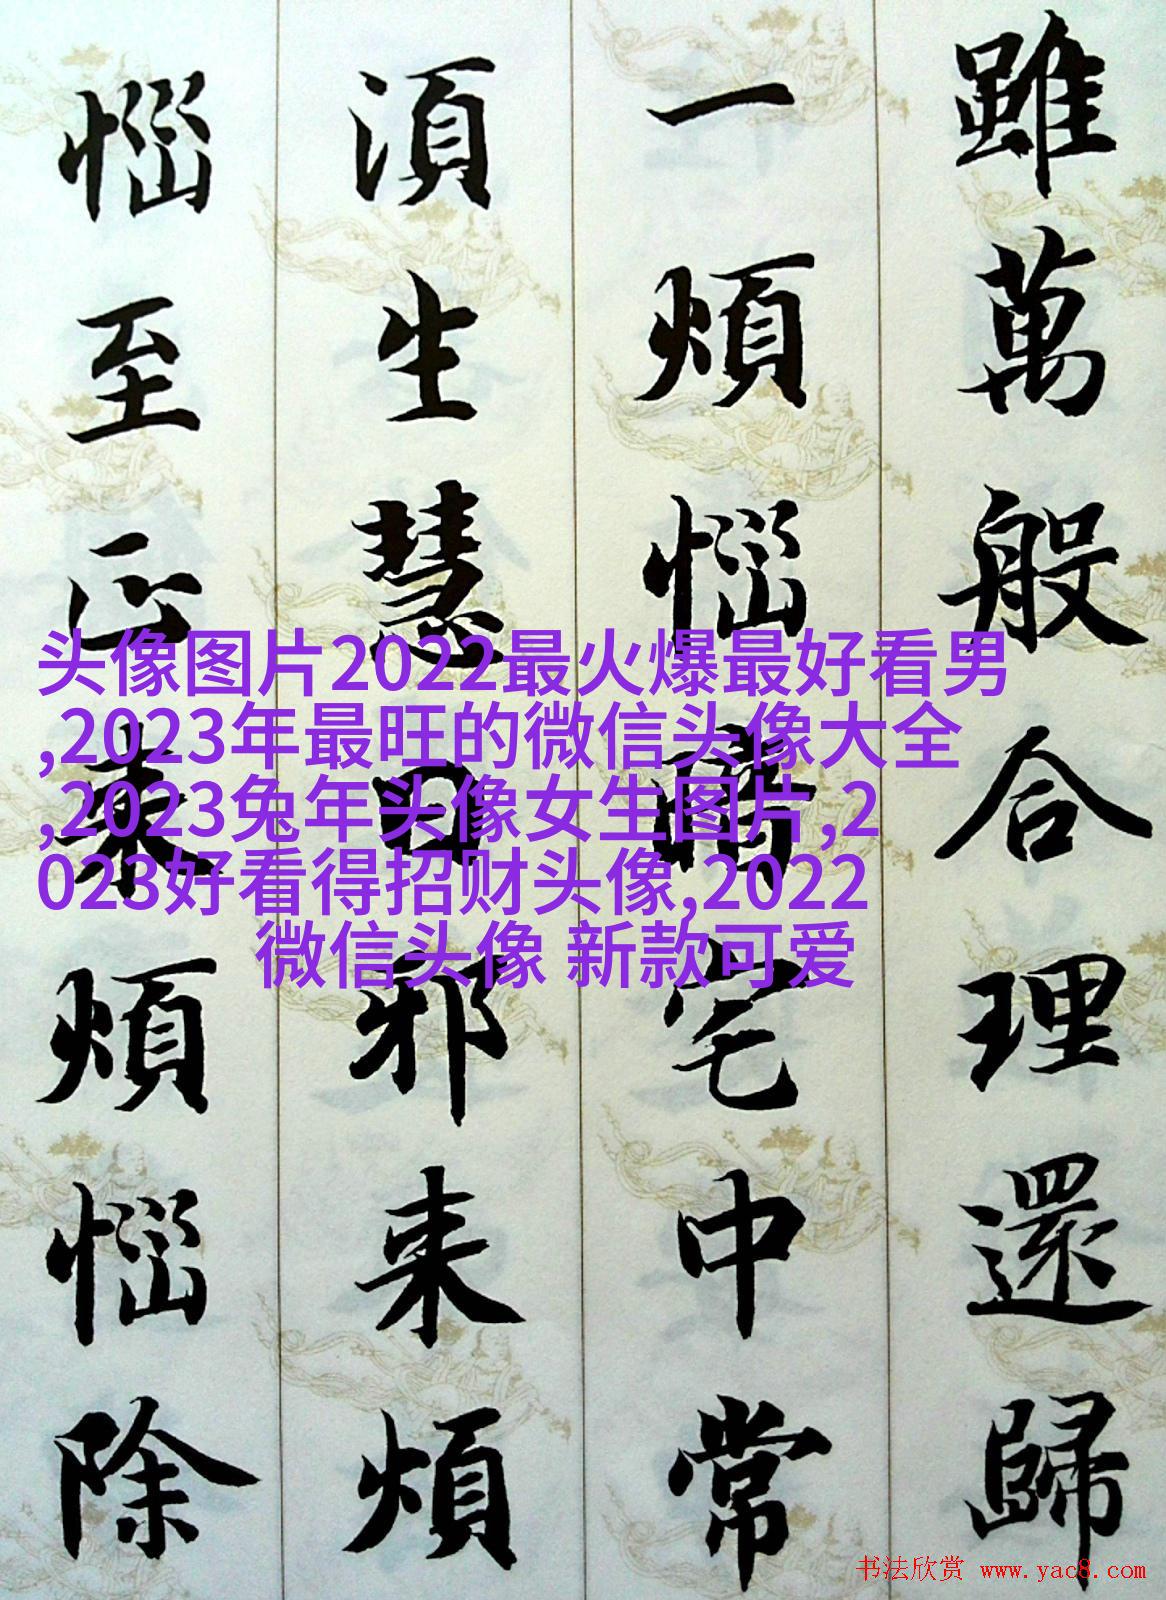 雖萬般合理還歸
一煩惱宅中常
湏生慧日邪来煩
惱至正来煩惱除
头像图片2022最火爆最好看男
,2023年最旺的微信头像大全
,2023兔年头像女生图片,2
023好看得招财头像,2022
微信头像 新款可爱
书法欣赏 www.yac8.com